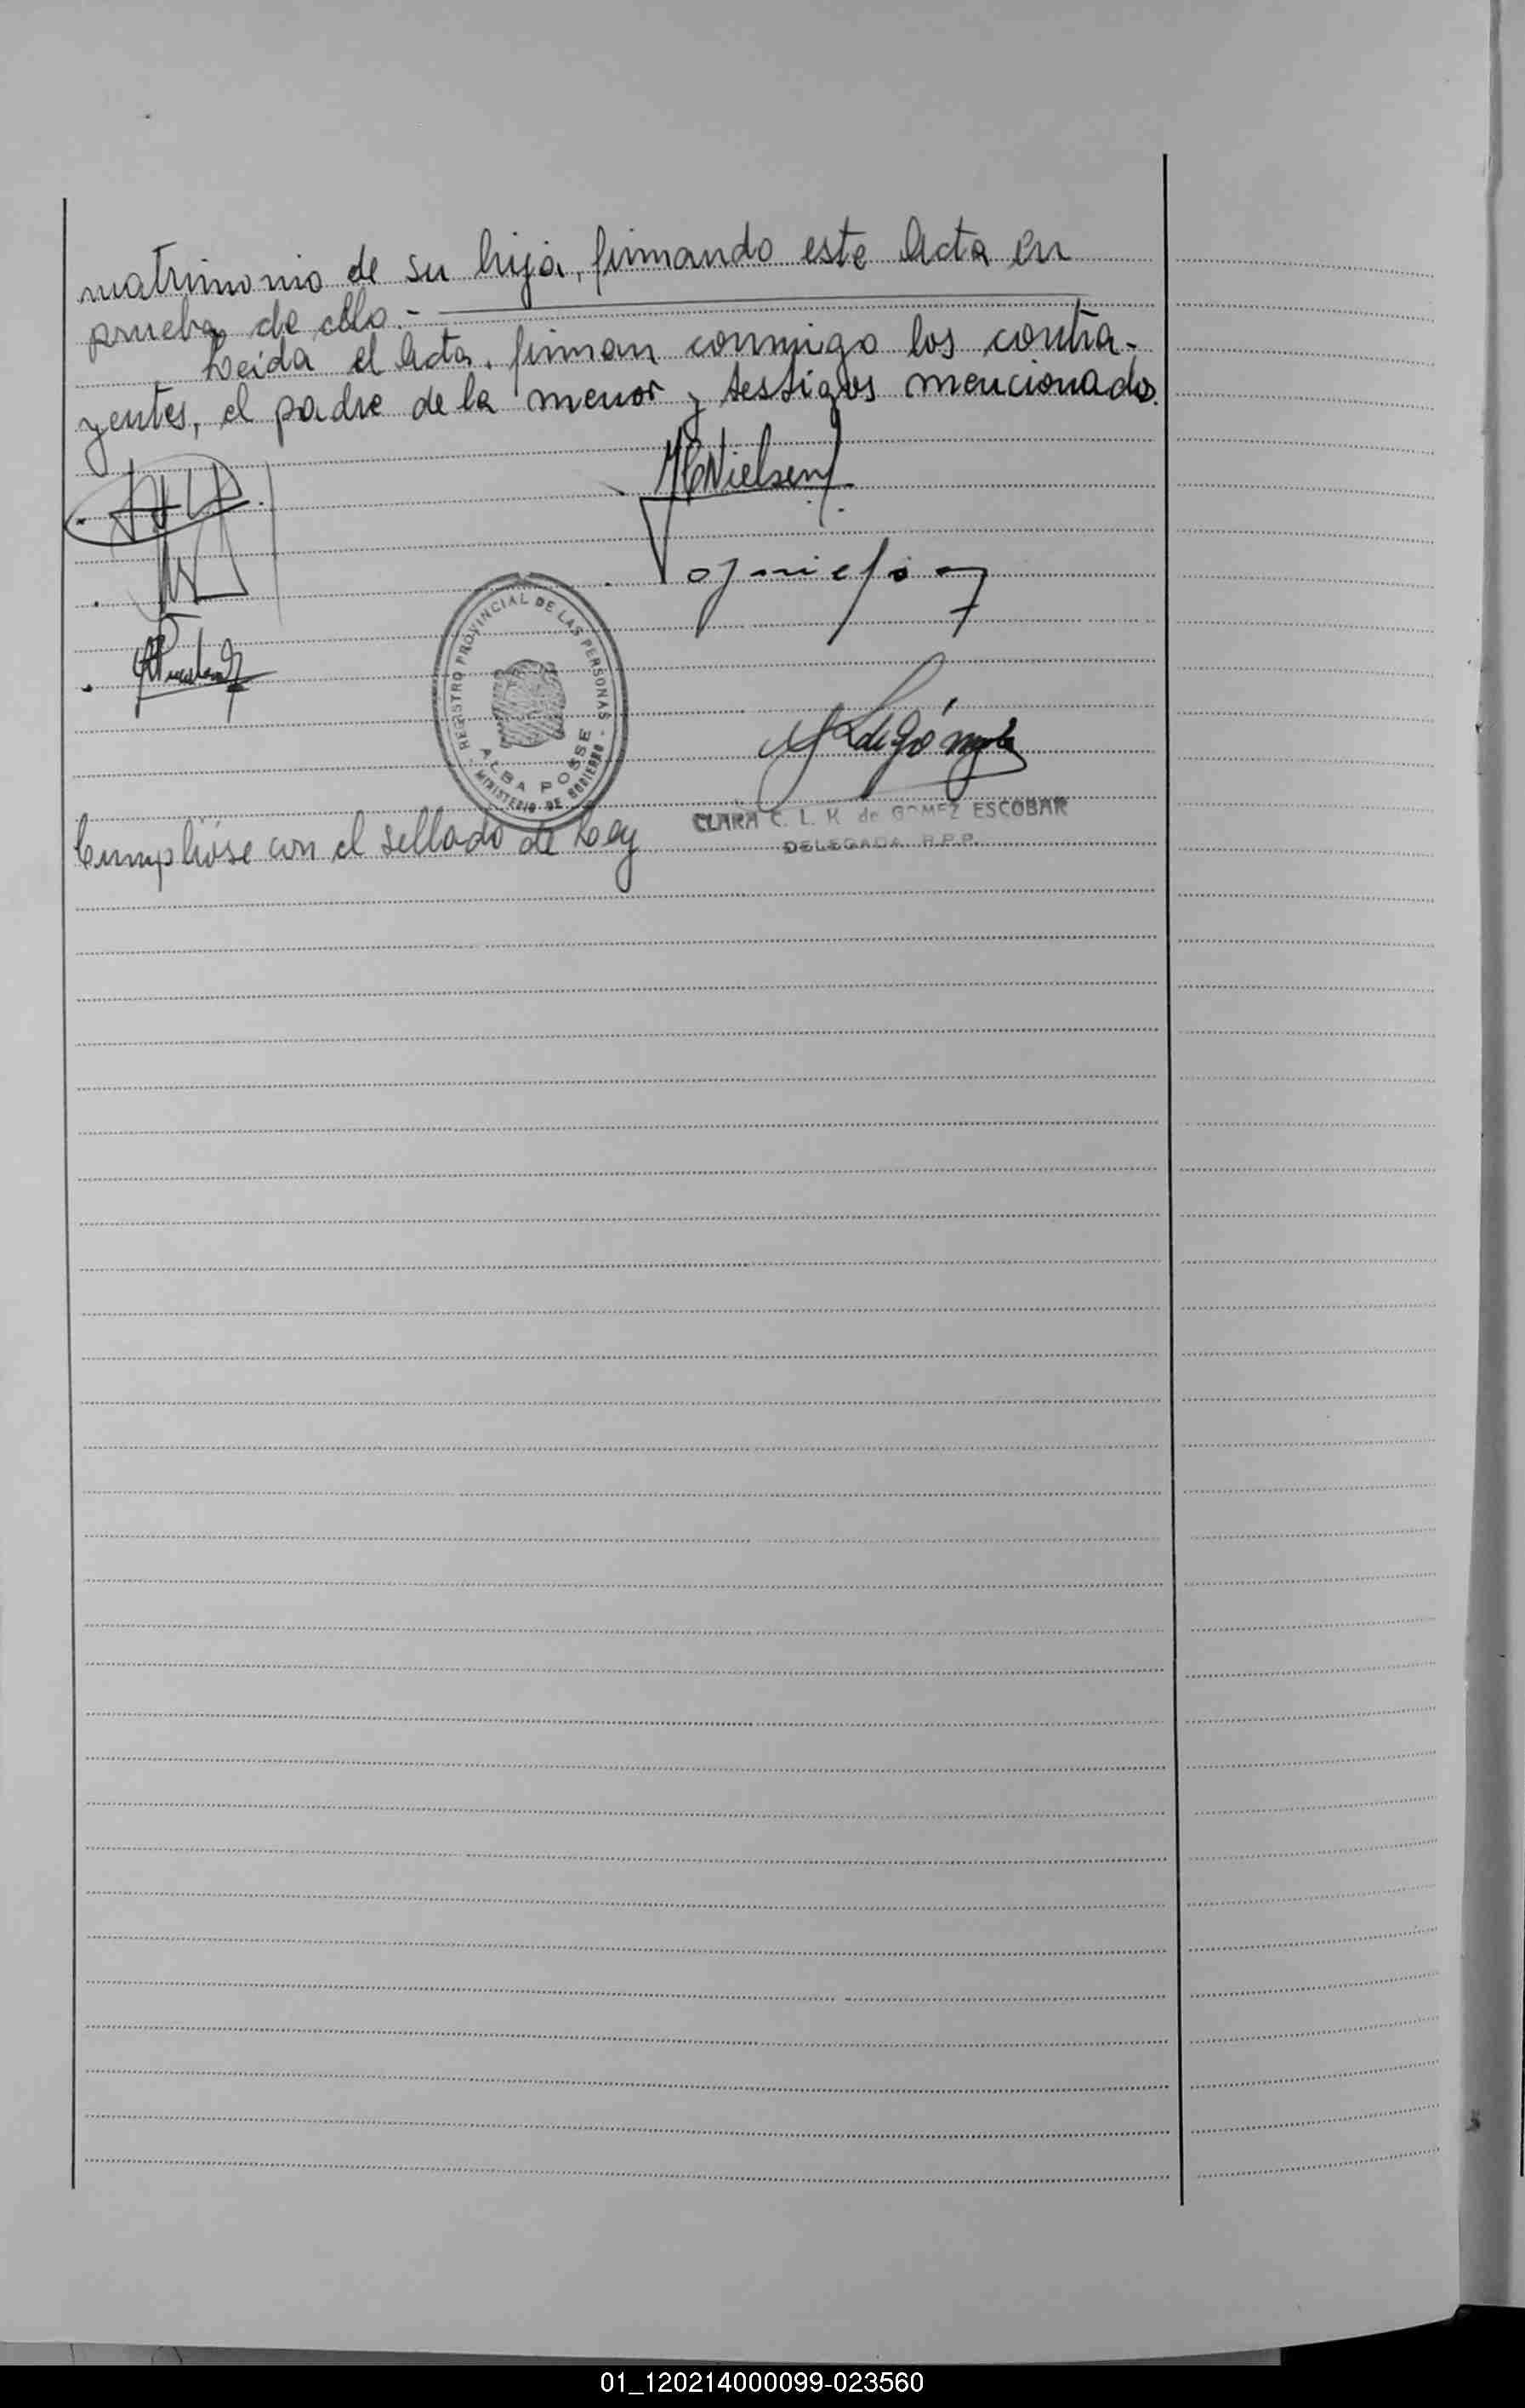 matrimonio de su hija, firmando este Acta en
prueba de ello.-
Leída el Acta, firman conmigo los contra-
yentes, el padre de la menor y testigos mencionados.
Nielsen
REGISTRO PROVINCIAL DE LAS PERSONAS
ALBA POSSE
- MINISTERIO DE GOBIERNO -
CLARA C. L. K. de GOMEZ ESCOBAR
DELEGADA R.P.P.
Cumplióse con el sellado de Ley
01_120214000099-023560